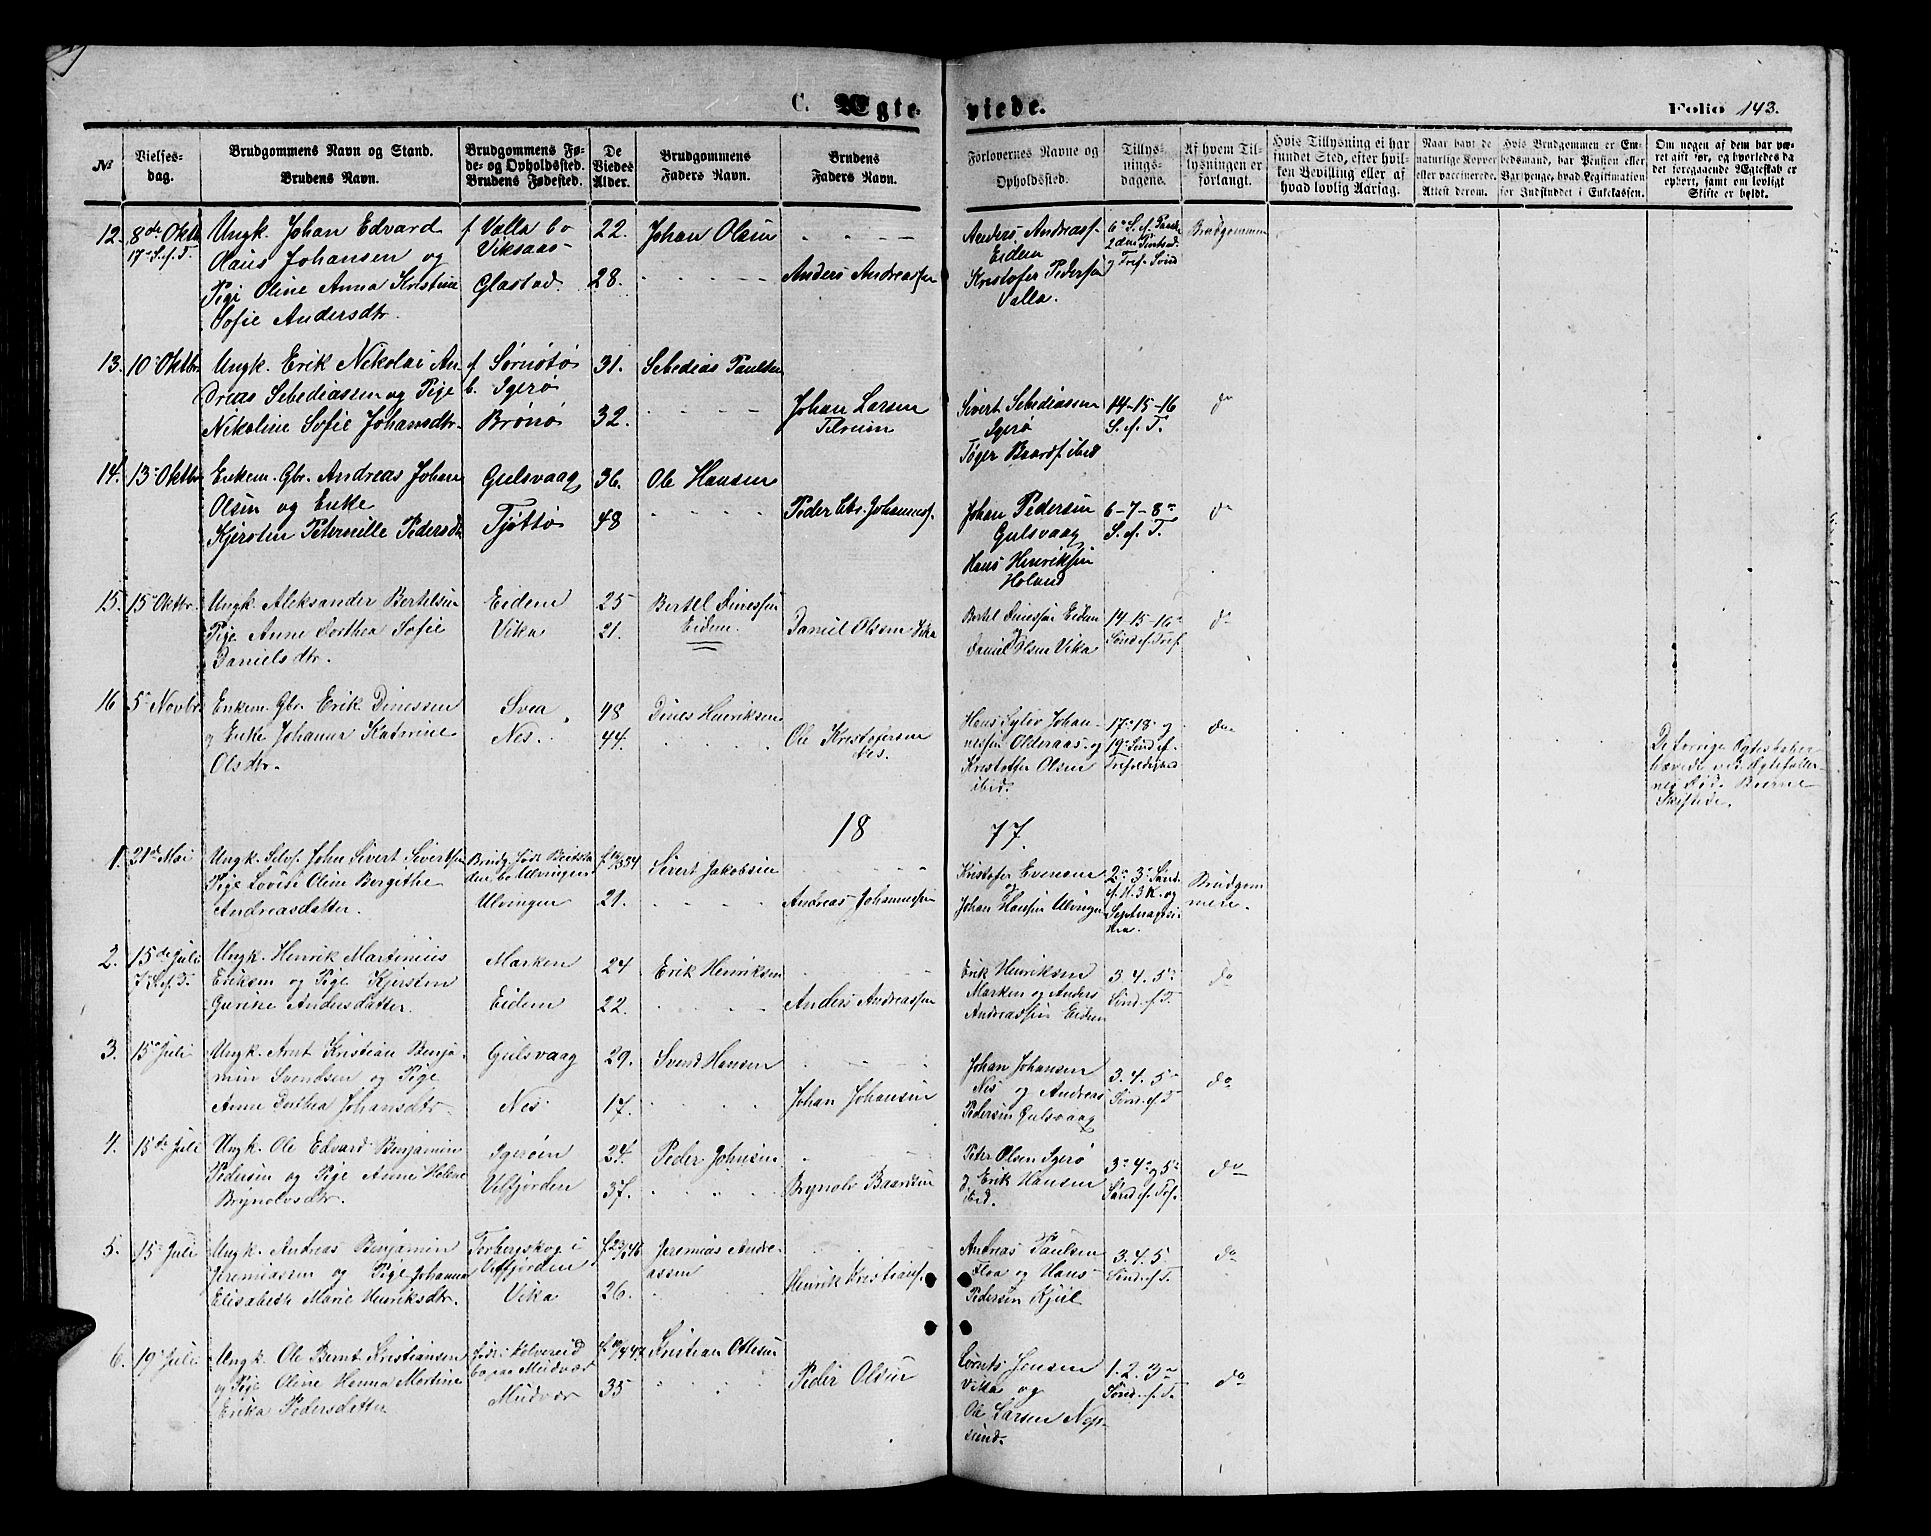 C. Ægte viede. Folio 143.
№
Vielses-dag.
Brudgommens Navn og Stand.
Brudens Navn.
Brudgommens Fø-
de- og Opholdssted.
Brudens Fødested.
De
Viedes
Alder.
Brudgommens
Faders Navn.
Brudens
Faders Navn.
Forlovernes Navne og
Opholdssted.
Tillys-
nings-
dagene.
Af hvem Til-
lysningen er
forlangt.
Hvis Tillysning ei har
fundet Sted, efter hvil-
ken Bevilling eller af
hvad lovlig Aarsag.
Naar havt de
naturlige Kopper
eller vaccinerede.
Attest derom.
Hvis Brudgommen er Em-
bedsmand, har Pension eller
Vartpenge, hvad Legitimation
for Indskuddet i Enkekassen.
Om nogen af dem har væ-
ret gift før, og hvorledes da
det foregaaende Ægteskab er
ophørt, samt om lovligt
Skifte er holdt.
12. 8de Oktb Ungk. Johan Edvard f Valla bo 22. Johan Olsen Anders Andreass. 6te S. f. Paaske Brudgommen
17 S. e. T. Olaus Johansen og Viksaas Eidem
Pige Oline Anna Kristine Glastad. 28. Anders Andreassen Kristofer Pedersen
Sofie Andersdtr. Valla.
13. 10 Oktbr Ungk. Erik Nikolai An- f Sørnøtø 31. Sebedias Paulsen
dreas Sebediassen og Pige b. Igerø Johan Larsen Sivert Sebediassen 14-15-16 do
Nikoline Sofie Johansdtr. Brønø 32. Tilrem Igerø S. e. T.
Tøger Baards. ibid
14. 13 Oktbr Enkem. Gbr. Andreas Johan Gulsvaag 36. Ole Hansen
Olsen og Enke Peder Chr. Johanness. Johan Pedersen 6-7-8 do
Kjersten Peternille Pedersdtr Tjøttø 48 Gulsvaag S. e. T.
Hans Henriksen
Holand
15. 15 Oktbr. Ungk. Aleksander Bertelsen Eidem 25 Bertel Dinessen Bertel Dinessen Eidem 14-15-16 do
Pige Anne Dorthea Sofie Vika 21. Eidem. Daniel Olsen Vika Daniel Olsen Vika Sønd. ef. Tref.
Danielsdtr.
16 5 Novbr Enkem. Gbr. Erik Dinessen Svea 48 Dines Henriksen Hans Johan- 17-18 og do
og Enke Johanna Katrine Nes. 44. Ole Kristofersen nessen Olderaas og 19 Sønd. ef.
Olsdtr. Nes. Kristoffer Olsen Trefoldighed
ibid.
De forrige Ægteskaber
hævede ved Ægtefæller-
nes Død.
Skiftede.
18 77.
1. 21de Mai Ungk. Selvf. John Sivert Sivertsen Brudg. født Beitsta- f 54 Sivert Jakobsen Kristofer Evensen 2 3 Sønd. Brudgom-
Pige Lovise Oline Bergithe den bo Ulvingen og ef. H. 3 K. og men.
Andreasdatter. Ulvingen 21. Andreas Johannessen Johan Hansen Ulvingen Septuagesi-
ma.
2. 15de Juli Ungk. Henrik Martinius Marken 24 Erik Henriksen Erik Henriksen 3. 4. 5 do
7 S. e. T. Eriksen og Pige Kjersten Marken og Anders Sønd. ef. T
Gurine Andersdatter. Eidem 22. Anders Andreassen Andreassen Eidem
3. 15 Juli Ungk. Arnt Kristian Benja- Gulsvaag 29. Svend Hansen Johan Johansen 3. 4. 5 do
min Svendsen og Pige Nes og Andreas Sønd. ef. T
Anne Dorthea Johansdtr. Nes 17. Johan Johansen Pedersen Gulsvaag
4. 15de Juli Ungk. Ole Edvard Benjamin Igerøen 24. Peder Johnsen Peter Olsen Igerø 3 4 og 5 do
Pedersen og Pige Anne Helene Velfjorden 37. Brynolv Baardsen og Erik Hansen Sønd. ef. Tref.
Brynolvsdtr. ibid.
5. 15 Juli Ungk. Andreas Benjamin Torbergskog i f 23 46 Jeremias Andre- Andreas Paulsen 3. 4. 5 do
Jeremiassen og Pige Johanna Velfjorden assen Floa og Hans Sønd. ef. T.
Elisabeth Marie Henriksdtr. Vika 26. Henrik Kristians. Pedersen Kjul
6. 19 Juli Ungk. Ole Bernt Kristiansen født i Kolvereid f 47 Kristian Ottesen Lorents Jensen 1. 2. 3 do
og Pige Oline Hanna Martine bo paa Mudvær Vika og Sønd. ef. T.
Erika Pedersdatter Mudvær 35 Peder Olsen Ole Larsen Nep-
sund.